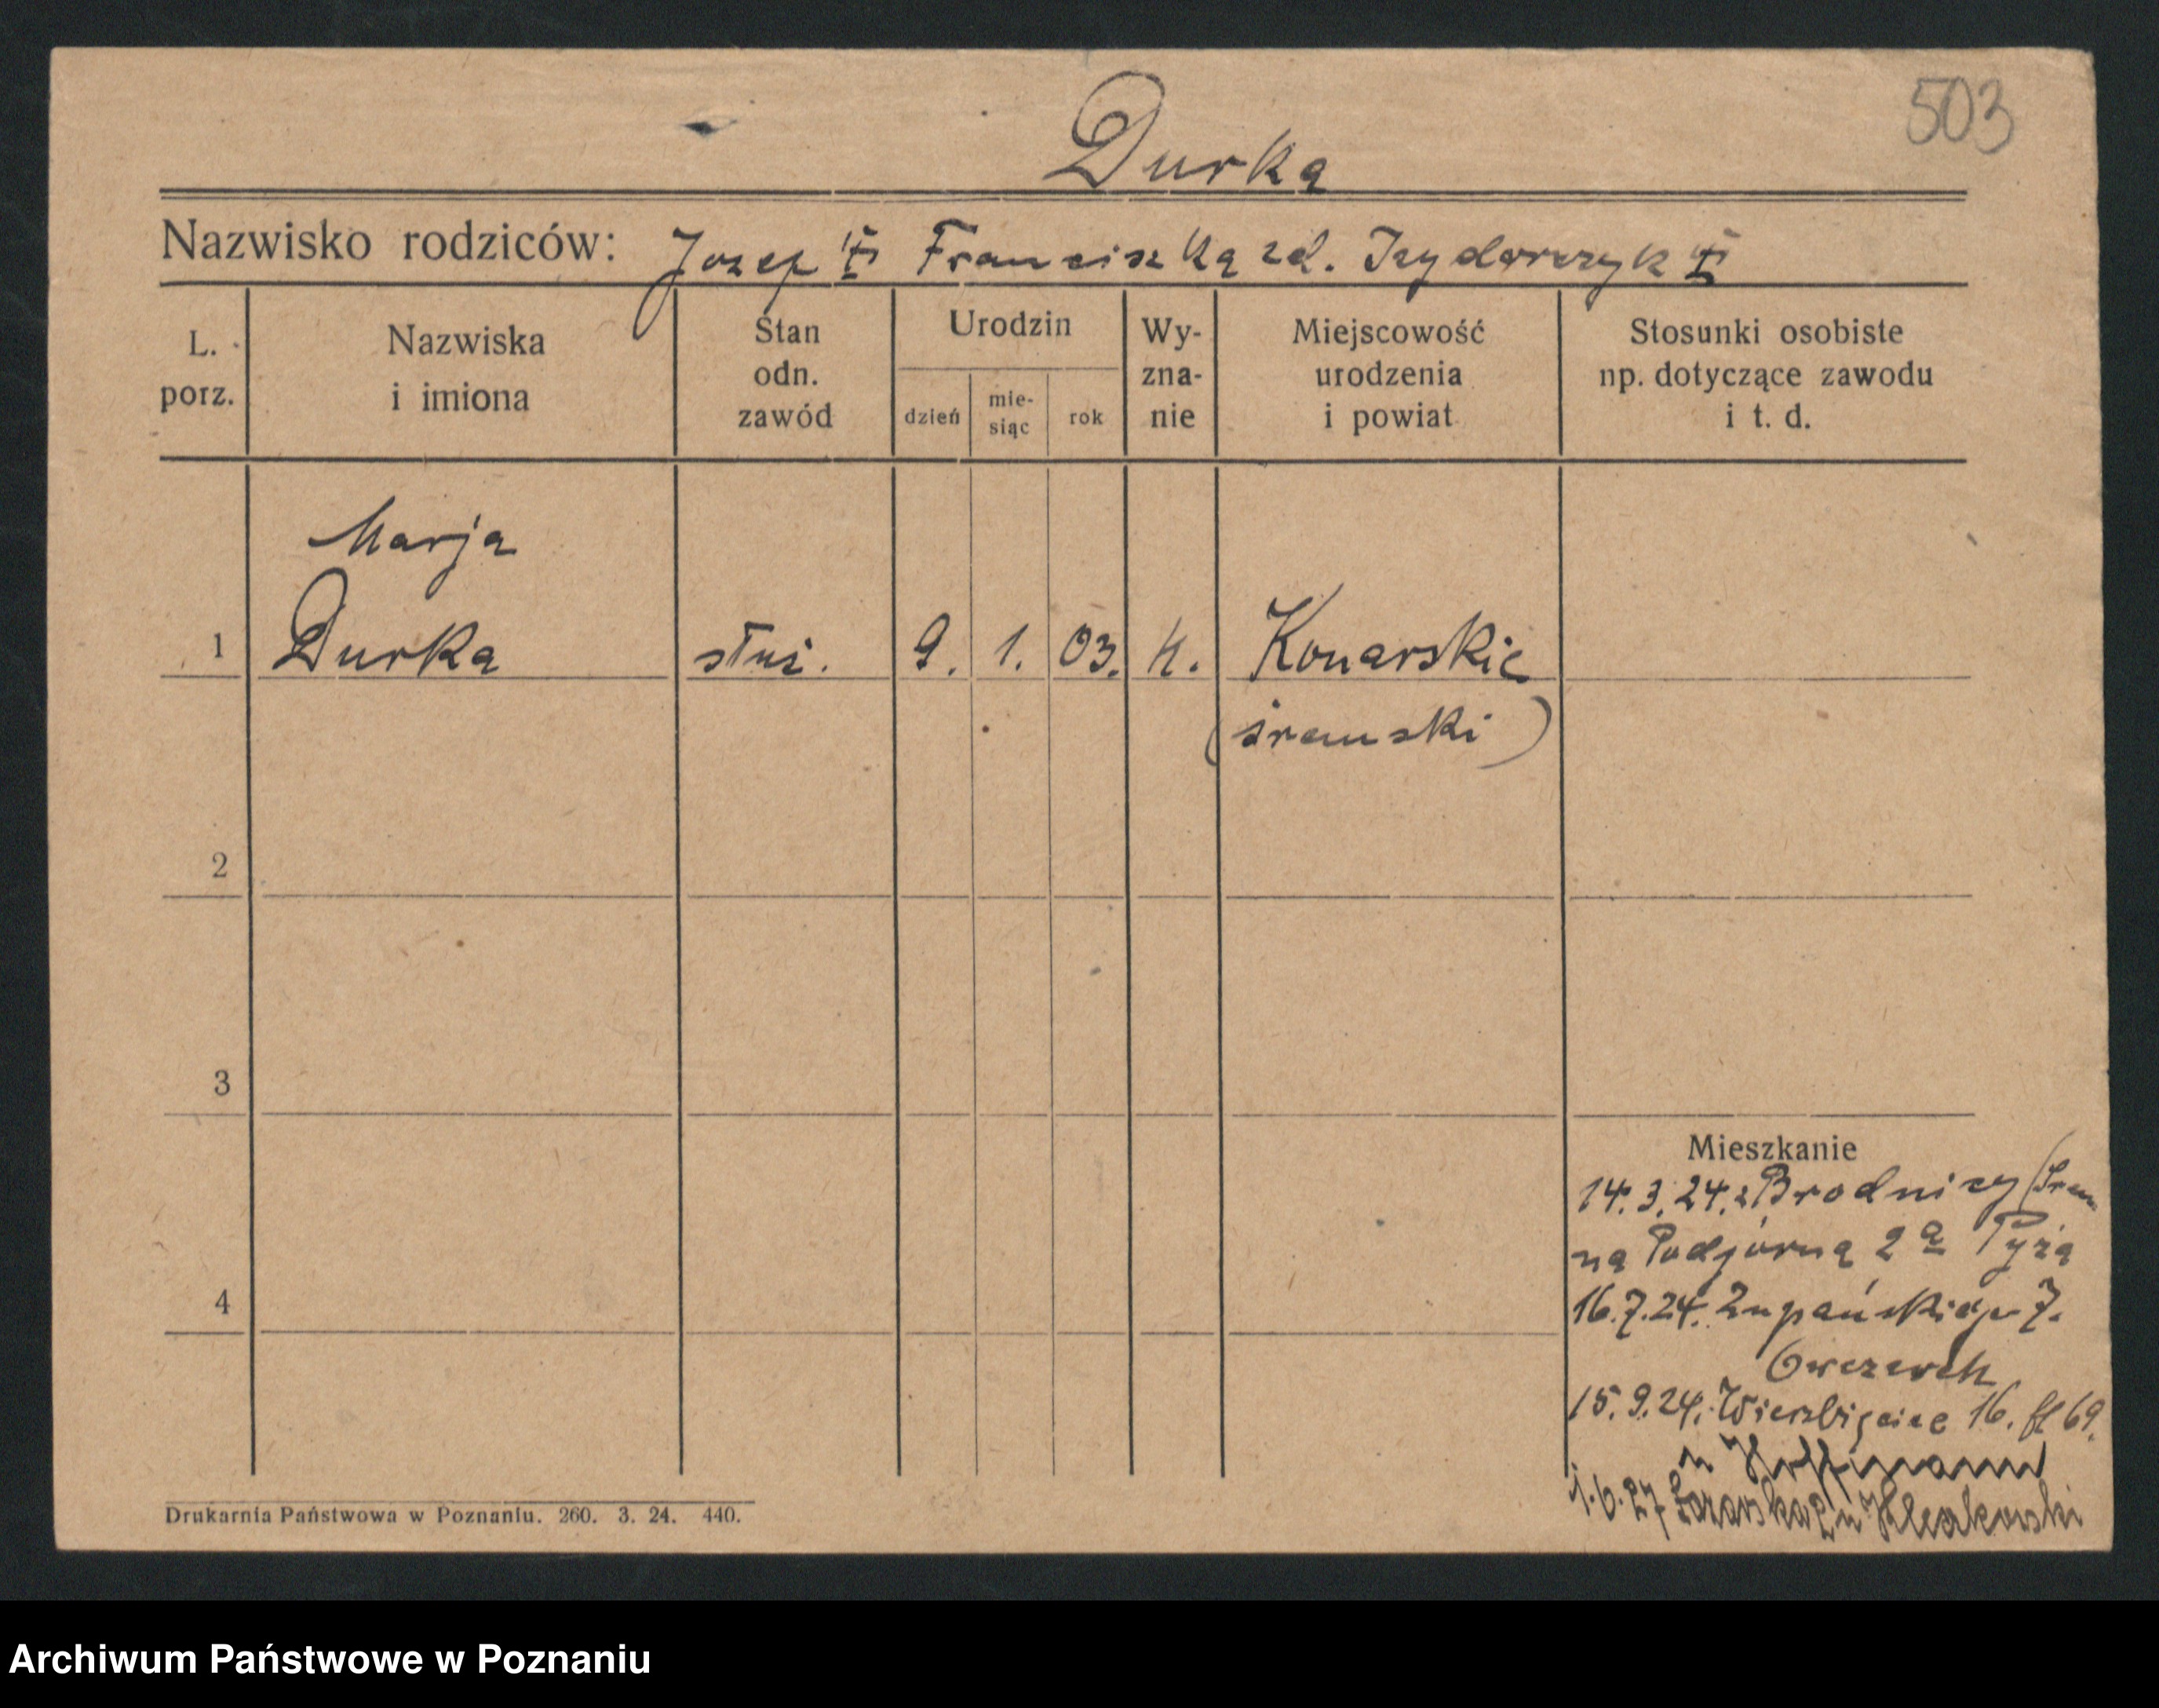 503
Durka
Nazwisko rodziców: Jozef Franciszka zd. Izydorczyk
L. porz.
Nazwiska i imiona
Stan odn. zawód
Urodzin
dzień
mie- siąc
rok
Wy- zna- nie
Miejscowość urodzenia i powiat
Stosunki osobiste np. dotyczące zawodu i t. d.
Marja
1 Durka służ. 9. 1. 03. k. Konarskie
(śremski)
2
3
Mieszkanie
14.3.24. z Brodnicy (Śrem
na Podgórną 2a Pyża
4
16.7.24. Zupańskiego 7.
Owczarek
15.9.24. Wierzbięcice 16.
u Hoffmann
1.6.27
Drukarnia Państwowa w Poznaniu. 260. 3. 24. 440.
Archiwum Państwowe w Poznaniu